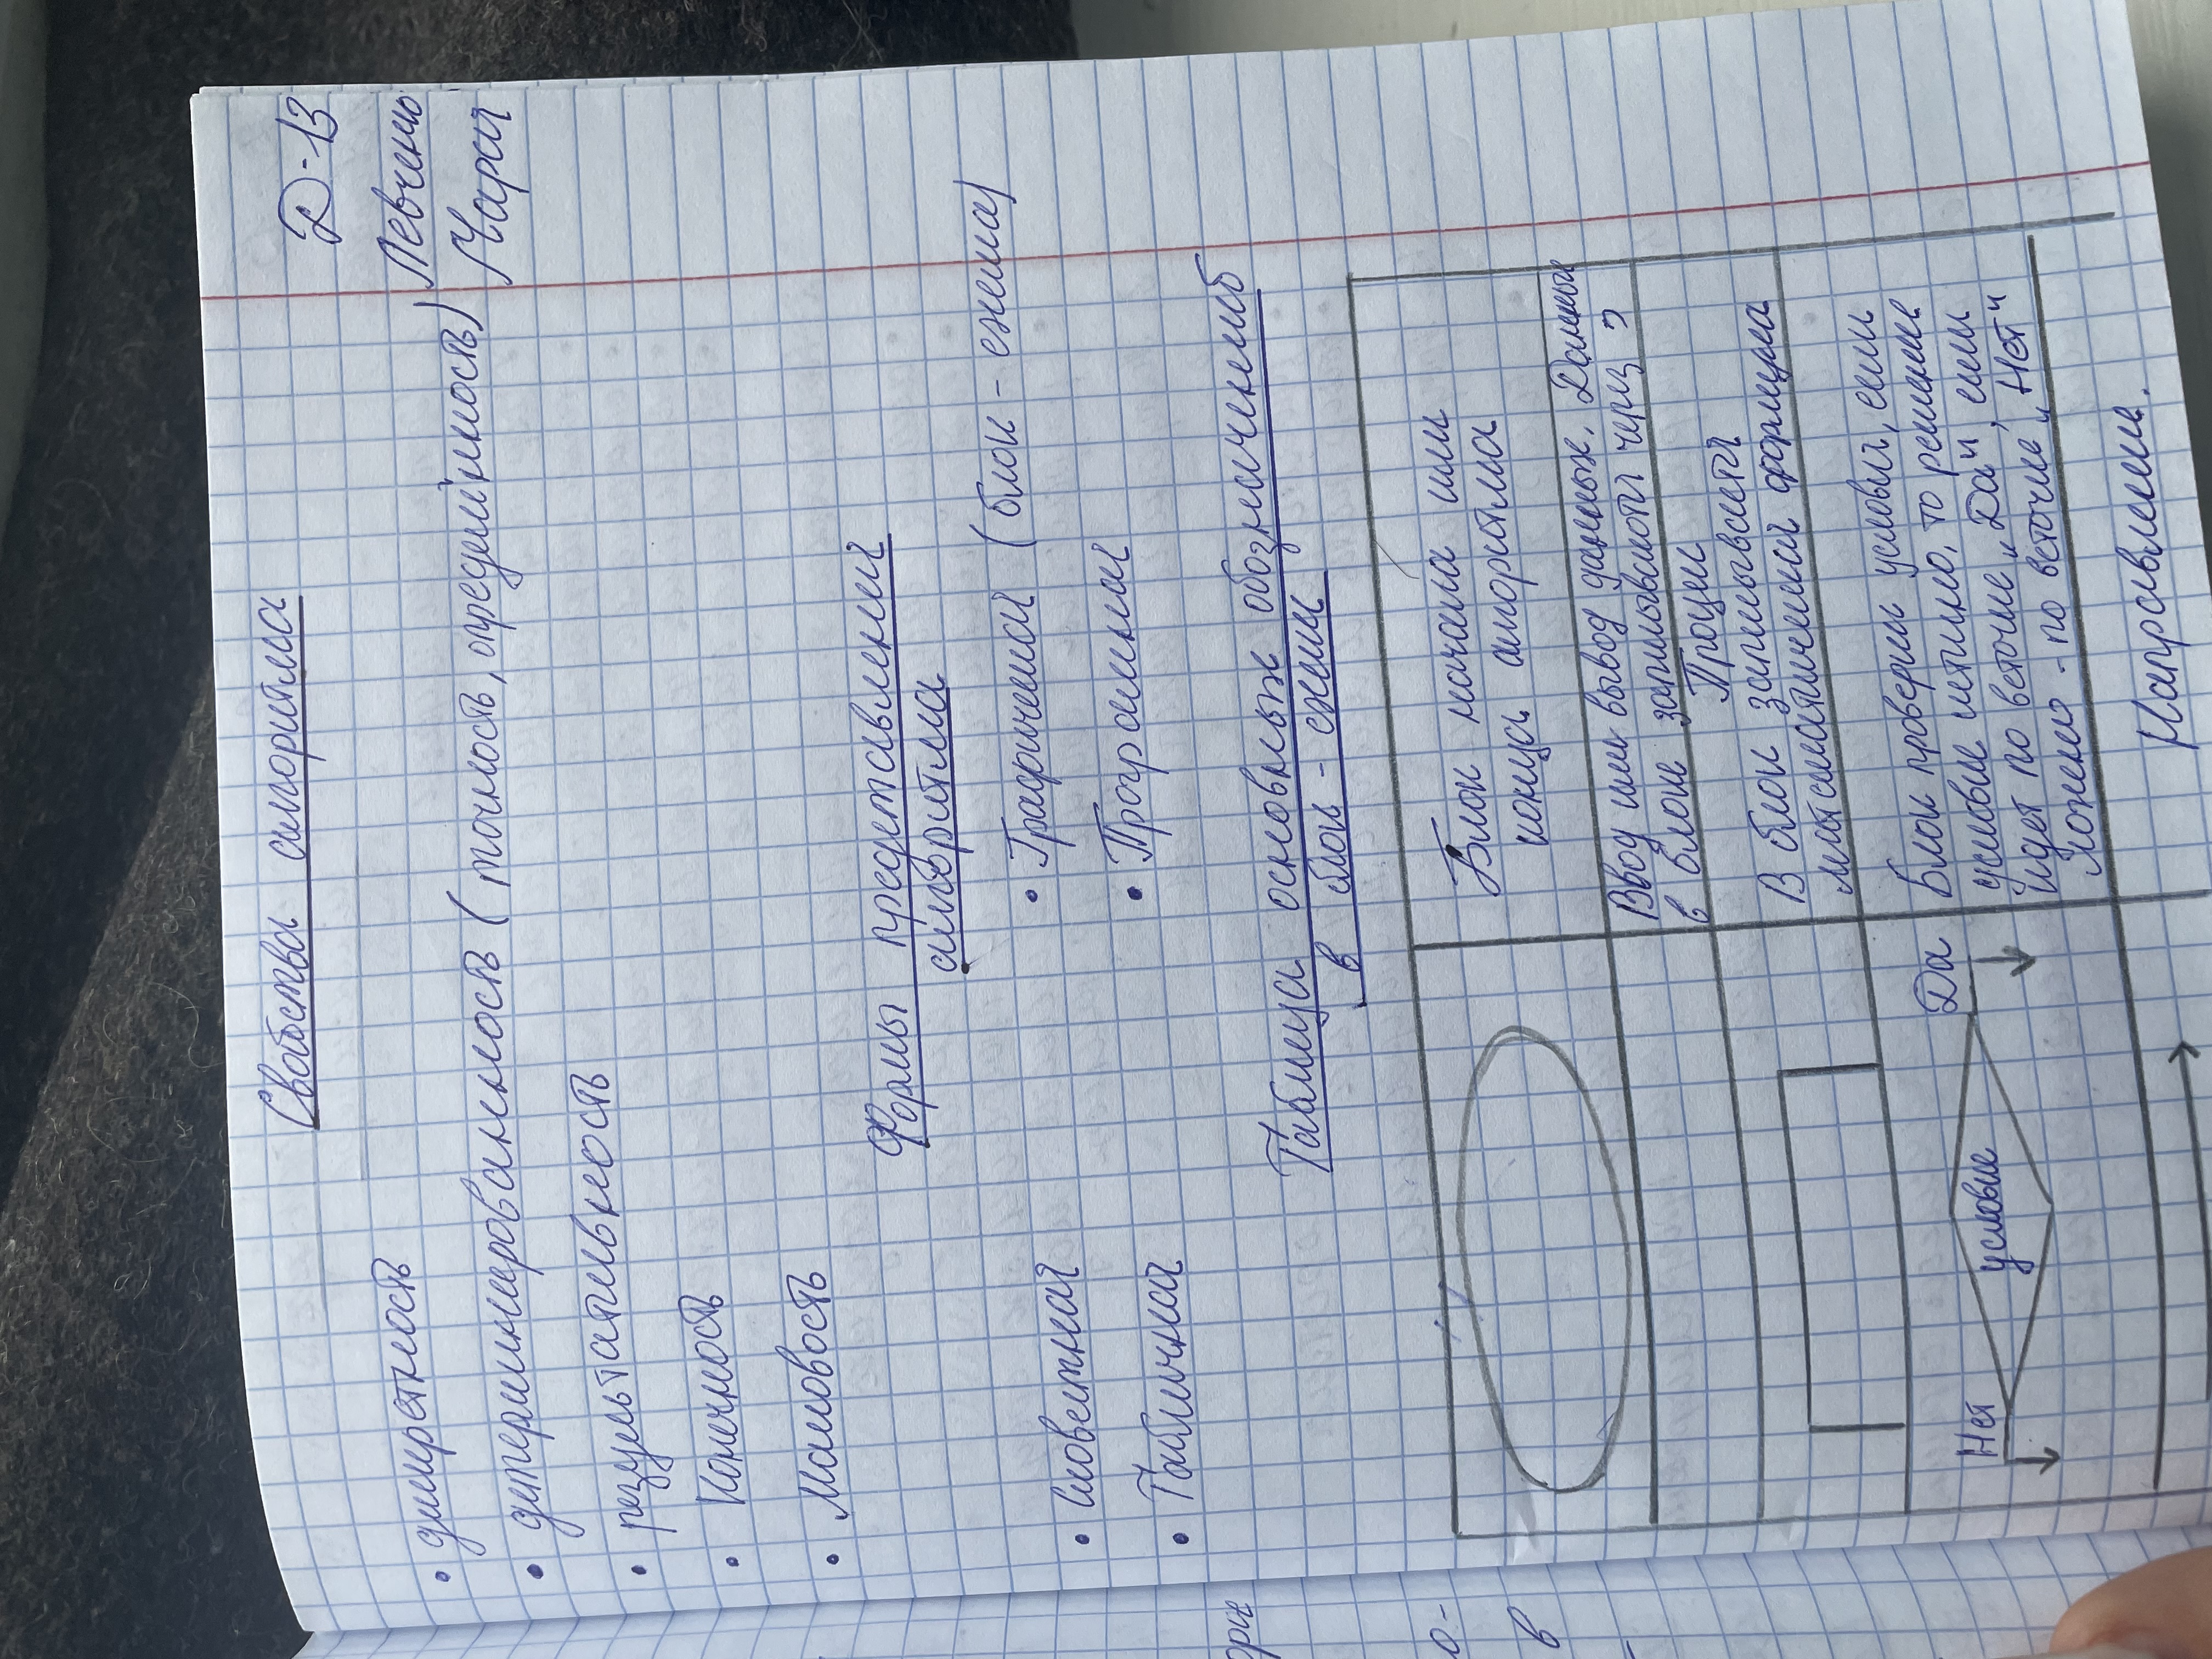 Д-13
Левченко
Дарья
Свойства алгоритма
• дискретность
• детерминированность (точность, определённость)
• результативность
• Конечность
• Массовость
Формы представления
алгоритма
• Словестная
• Графическая (блок-схема)
• Табличная
• Програмная
Таблица основных обозначений
в блок-схеме
Блок начала или
конца алгоритма
Ввод или вывод данных. Данные
в блоке записываются через ,
Процесс
В блок записывается
математическая формула
Нет
условие
Да
Блок проверки условия, если
условие истинно, то решение
идёт по веточке „Да", если
ложное - по веточке „Нет"
Направление.
о-
в